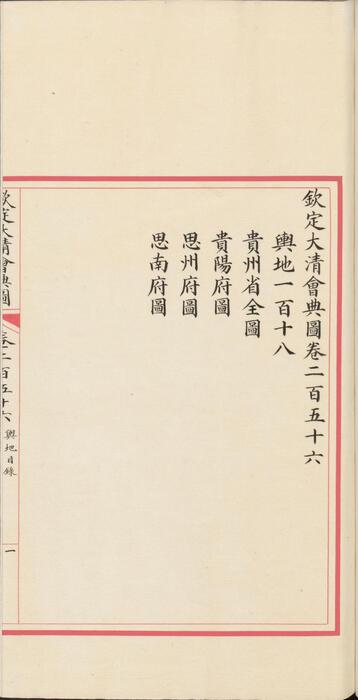 欽定大清會典圖卷二百五十六
輿地一百十八
貴州省全圖
貴陽府圖
思州府圖
思南府圖
欽定大清會典圖
卷二百五十六
輿地目錄
一